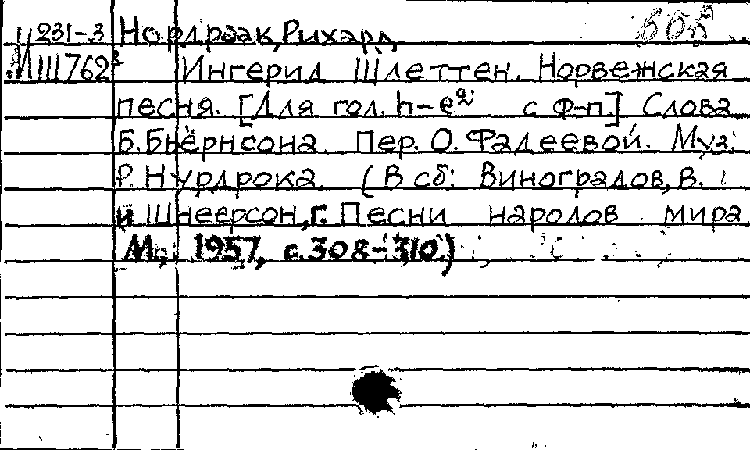 Ц 231-3 Нордраак, Рихард
М III 762² Ингерид Шлеттен. Норвежская
песня. [Для гол. h-e² с ф-п] Слова
Б. Бьёрнсона. Пер. О. Фадеевой. Муз.
Р. Нурдрока. (В сб: Виноградов, В.
и Шнеерсон, Г. Песни народов мира
М., 1957, с. 308-310.)